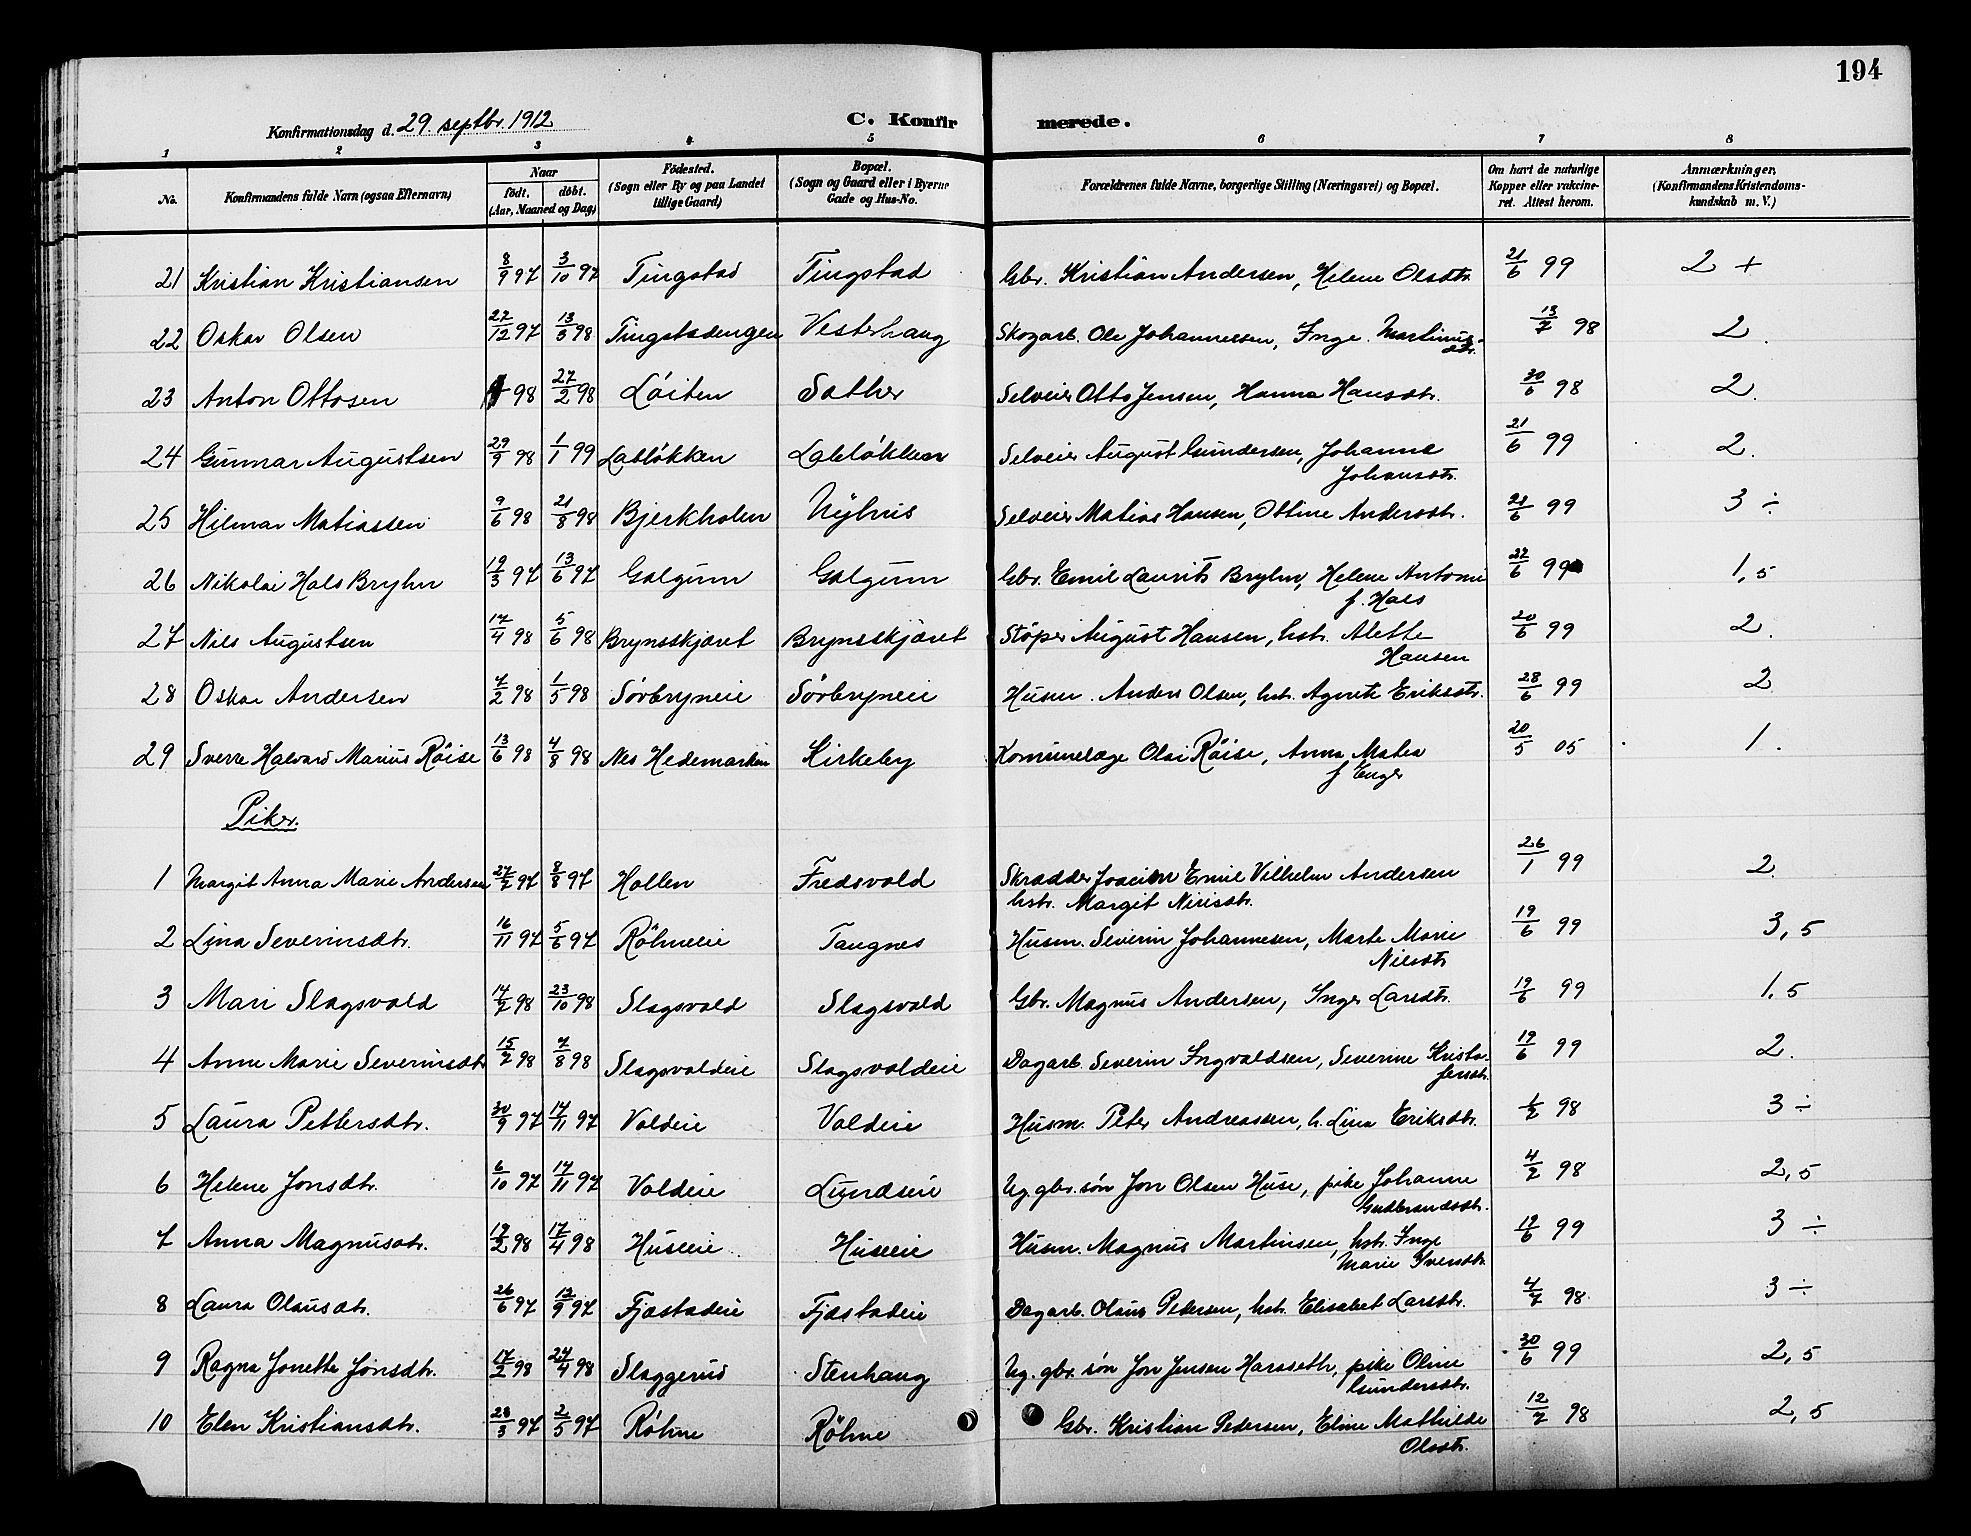 194
Konfirmationsdag d. 29 septbr. 1912 C. Konfirmerede.
1 2 3 4 5 6 7 8
No. Konfirmandens fulde Navn (ogsaa Efternavn) Naar født. døbt. (Aar, Maaned og Dag) Födested. (Sogn eller By og paa Landet tillige Gaard) Bopæl. (Sogn og Gaard eller i Byerne Gade og Hus-No. Forældrenes fulde Navne, borgerlige Stilling (Næringsvei) og Bopæl. Om havt de naturlige Kopper eller vakcineret. Attest herom. Anmærkninger, (Konfirmandens Kristendomskundskab m. V.)
21 Kristian Kristiansen 8/9 97 3/10 97 Tingstad Tingstad Gbr. Kristian Andersen, Helene Olsdtr. 21/6 99 2 +
22 Oskar Olsen 27/12 97 13/3 98 Tingstadengen Vesterhaug Skogarb. Ole Johannessen, Inge Martinusdtr. 13/7 98 2.
23 Anton Ottosen 98 27/2 98 Löiten Sæther Selveier Otto Jensen, Hanna Hansdtr. 30/6 98 2.
24 Gunnar Augustsen 29/9 98 1/1 99 Labløkken Labløkken Selveier August Gundersen, Johanne
Johansdtr. 21/6 99 2.
25 Hilmar Matiassen 9/6 98 21/8 98 Bjerkholen Nyhus Selveier Matias Hansen, Ottine Andersdtr. 21/6 99 3 ÷
26 Nikolai Hals Bryhn 19/3 97 13/6 97 Galgum Galgum Gbr. Emil Laurits Bryhn, Helene Antomi
f. Hals 27/6 99 1,5
27 Nils Augustsen 17/4 98 5/6 98 Brynsskjæret Brynsskjæret Støper August Hansen, hstr. Alette
Hansen 20/6 99 2.
28 Oskar Andersen 7/2 98 1/5 98 Sörbryneie Sörbryneie Husm. Anders Olsen, hst. Agnete Eriksdtr. 28/6 99 2
29 Sverre Halvard Marius Röise 13/6 98 4/8 98 Nes Hedemarken Kirkeby Komunelæge Olai Röise, Anna Matea
f Enger 20/5 05 1.
Piker.
1 Margit Anna Marie Andersen 27/7 97 8/8 97 Hollen Fredsvold Skrædder Joacim Emil Vilhelm Andersen
hstr. Margit Nirisdtr. 26/1 99 2.
2 Lina Severinsdtr. 16/11 97 5/6 97 Röhneeie Tangnes Husm. Severin Johannesen, Marte Marie
Nilsdtr 19/6 99 3,5
3 Mari Slagsvold 14/7 98 23/10 98 Slagsvold Slagsvold Gbr. Magnus Andersen, Inger Larsdtr. 19/6 99 1,5
4 Anne Marie Severinsdtr 15/7 98 7/8 98 Slagsvoldeie Slagsvoldeie Dagarb. Severin Ingvaldsen, Severine Kristofersdtr. 19/6 99 2.
5 Laura Pettersdtr. 30/9 97 14/11 97 Voldeie Voldeie Husm. Peter Andreassen, h. Lina Eriksdtr. 1/2 98 3 ÷
6 Helene Jonsdtr. 6/10 97 14/11 97 Voldeie Lundseie Ug. gbr. søn Jon Olsen Huse, pike Johanne
Gudbrandsdtr. 4/2 98 2,5
7 Anna Magnusdtr. 19/2 98 17/4 98 Huseeie Huseeie Husm. Magnus Martinsen, hst. Inge
Marie Svensdtr. 19/6 99 3 ÷
8 Laura Olausdtr. 26/6 97 12/9 97 Fjæstadeie Fjæstadeie Dagarb. Olaus Pedersen, hst. Elisabet Larsdtr. 4/7 98 3 ÷
9 Ragna Jonette Jonsdtr. 17/2 98 24/4 98 Slaggerud Stenhaug Ug. gbr. søn Jon Jensen Harseth, pike Oline
Gundersdtr. 30/6 99 2,5
10 Elen Kristiansdtr. 28/3 97 2/5 97 Röhne Röhne Gbr. Kristian Pedersen, Eline Mathilde
Olsdtr. 12/7 98 2,5